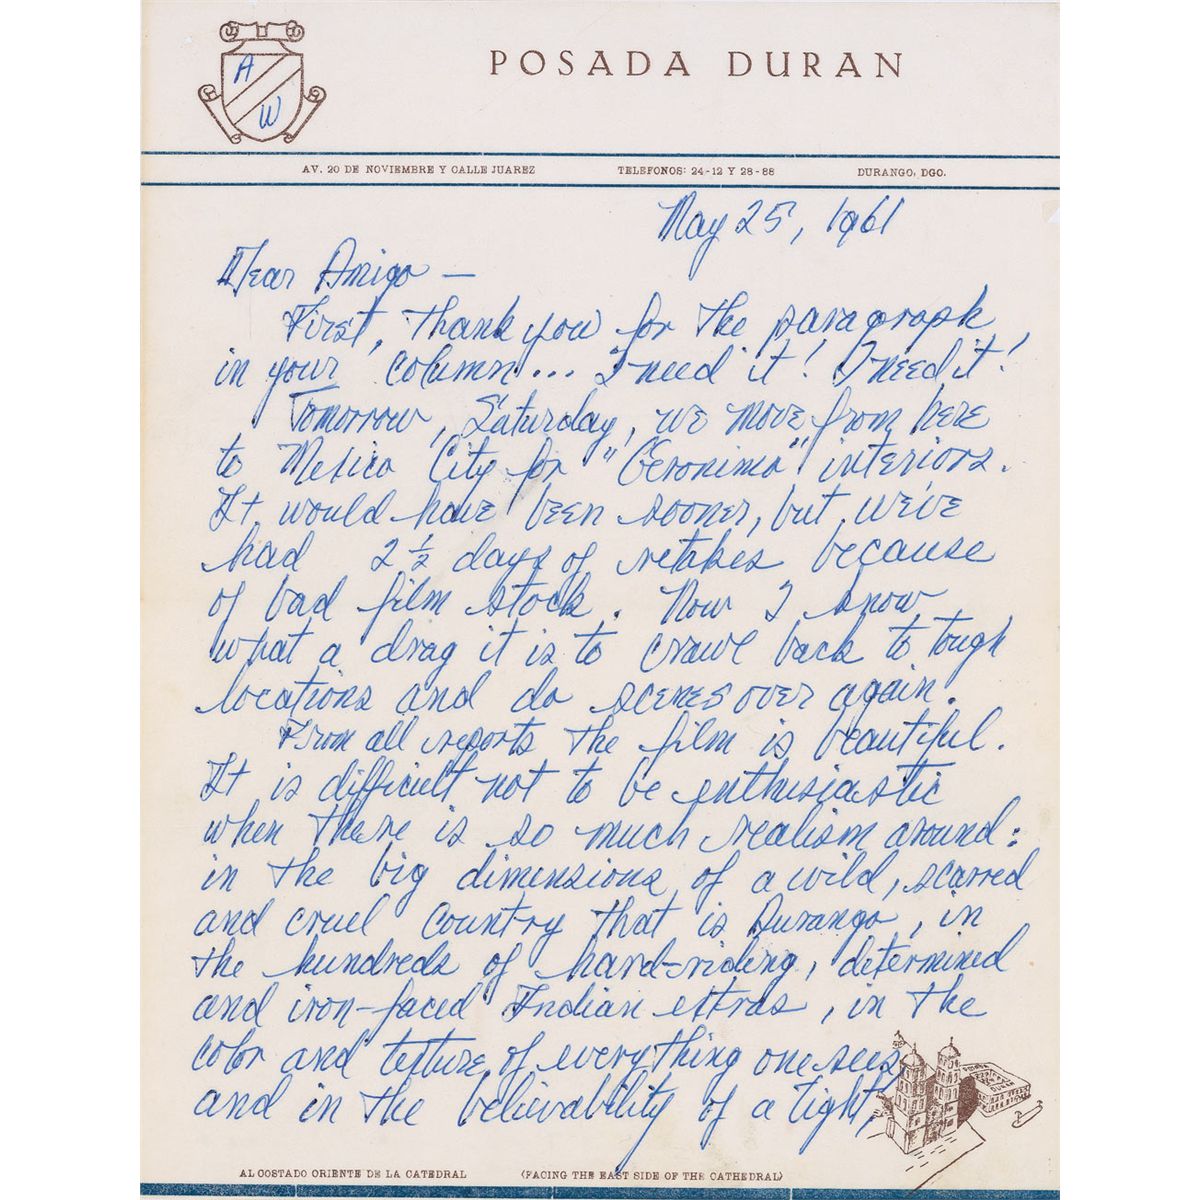 A
W
POSADA DURAN
AV. 20 DE NOVIEMBRE Y CALLE JUAREZ TELEFONOS: 24-12 Y 28-88 DURANGO, DGO.
May 25, 1961
Dear Amigo —
First, thank you for the paragraph
in your column... I need it! I need it!
Tomorrow, Saturday, we move from here
to Mexico City for "Geronimo" interiors.
It would have been sooner, but we've
had 2 1/2 days of retakes because
of bad film stock. Now I know
what a drag it is to crawl back to tough
locations and do scenes over again.
From all reports the film is beautiful.
It is difficult not to be enthusiastic
when there is so much realism around:
in the big dimensions of a wild, scarred
and cruel country that is Durango, in
the hundreds of hard-riding, determined
and iron-faced Indian extras, in the
color and texture of everything one sees
and in the believability of a tight,
POSADA
DURAN
AL COSTADO ORIENTE DE LA CATEDRAL (FACING THE EAST SIDE OF THE CATHEDRAL)